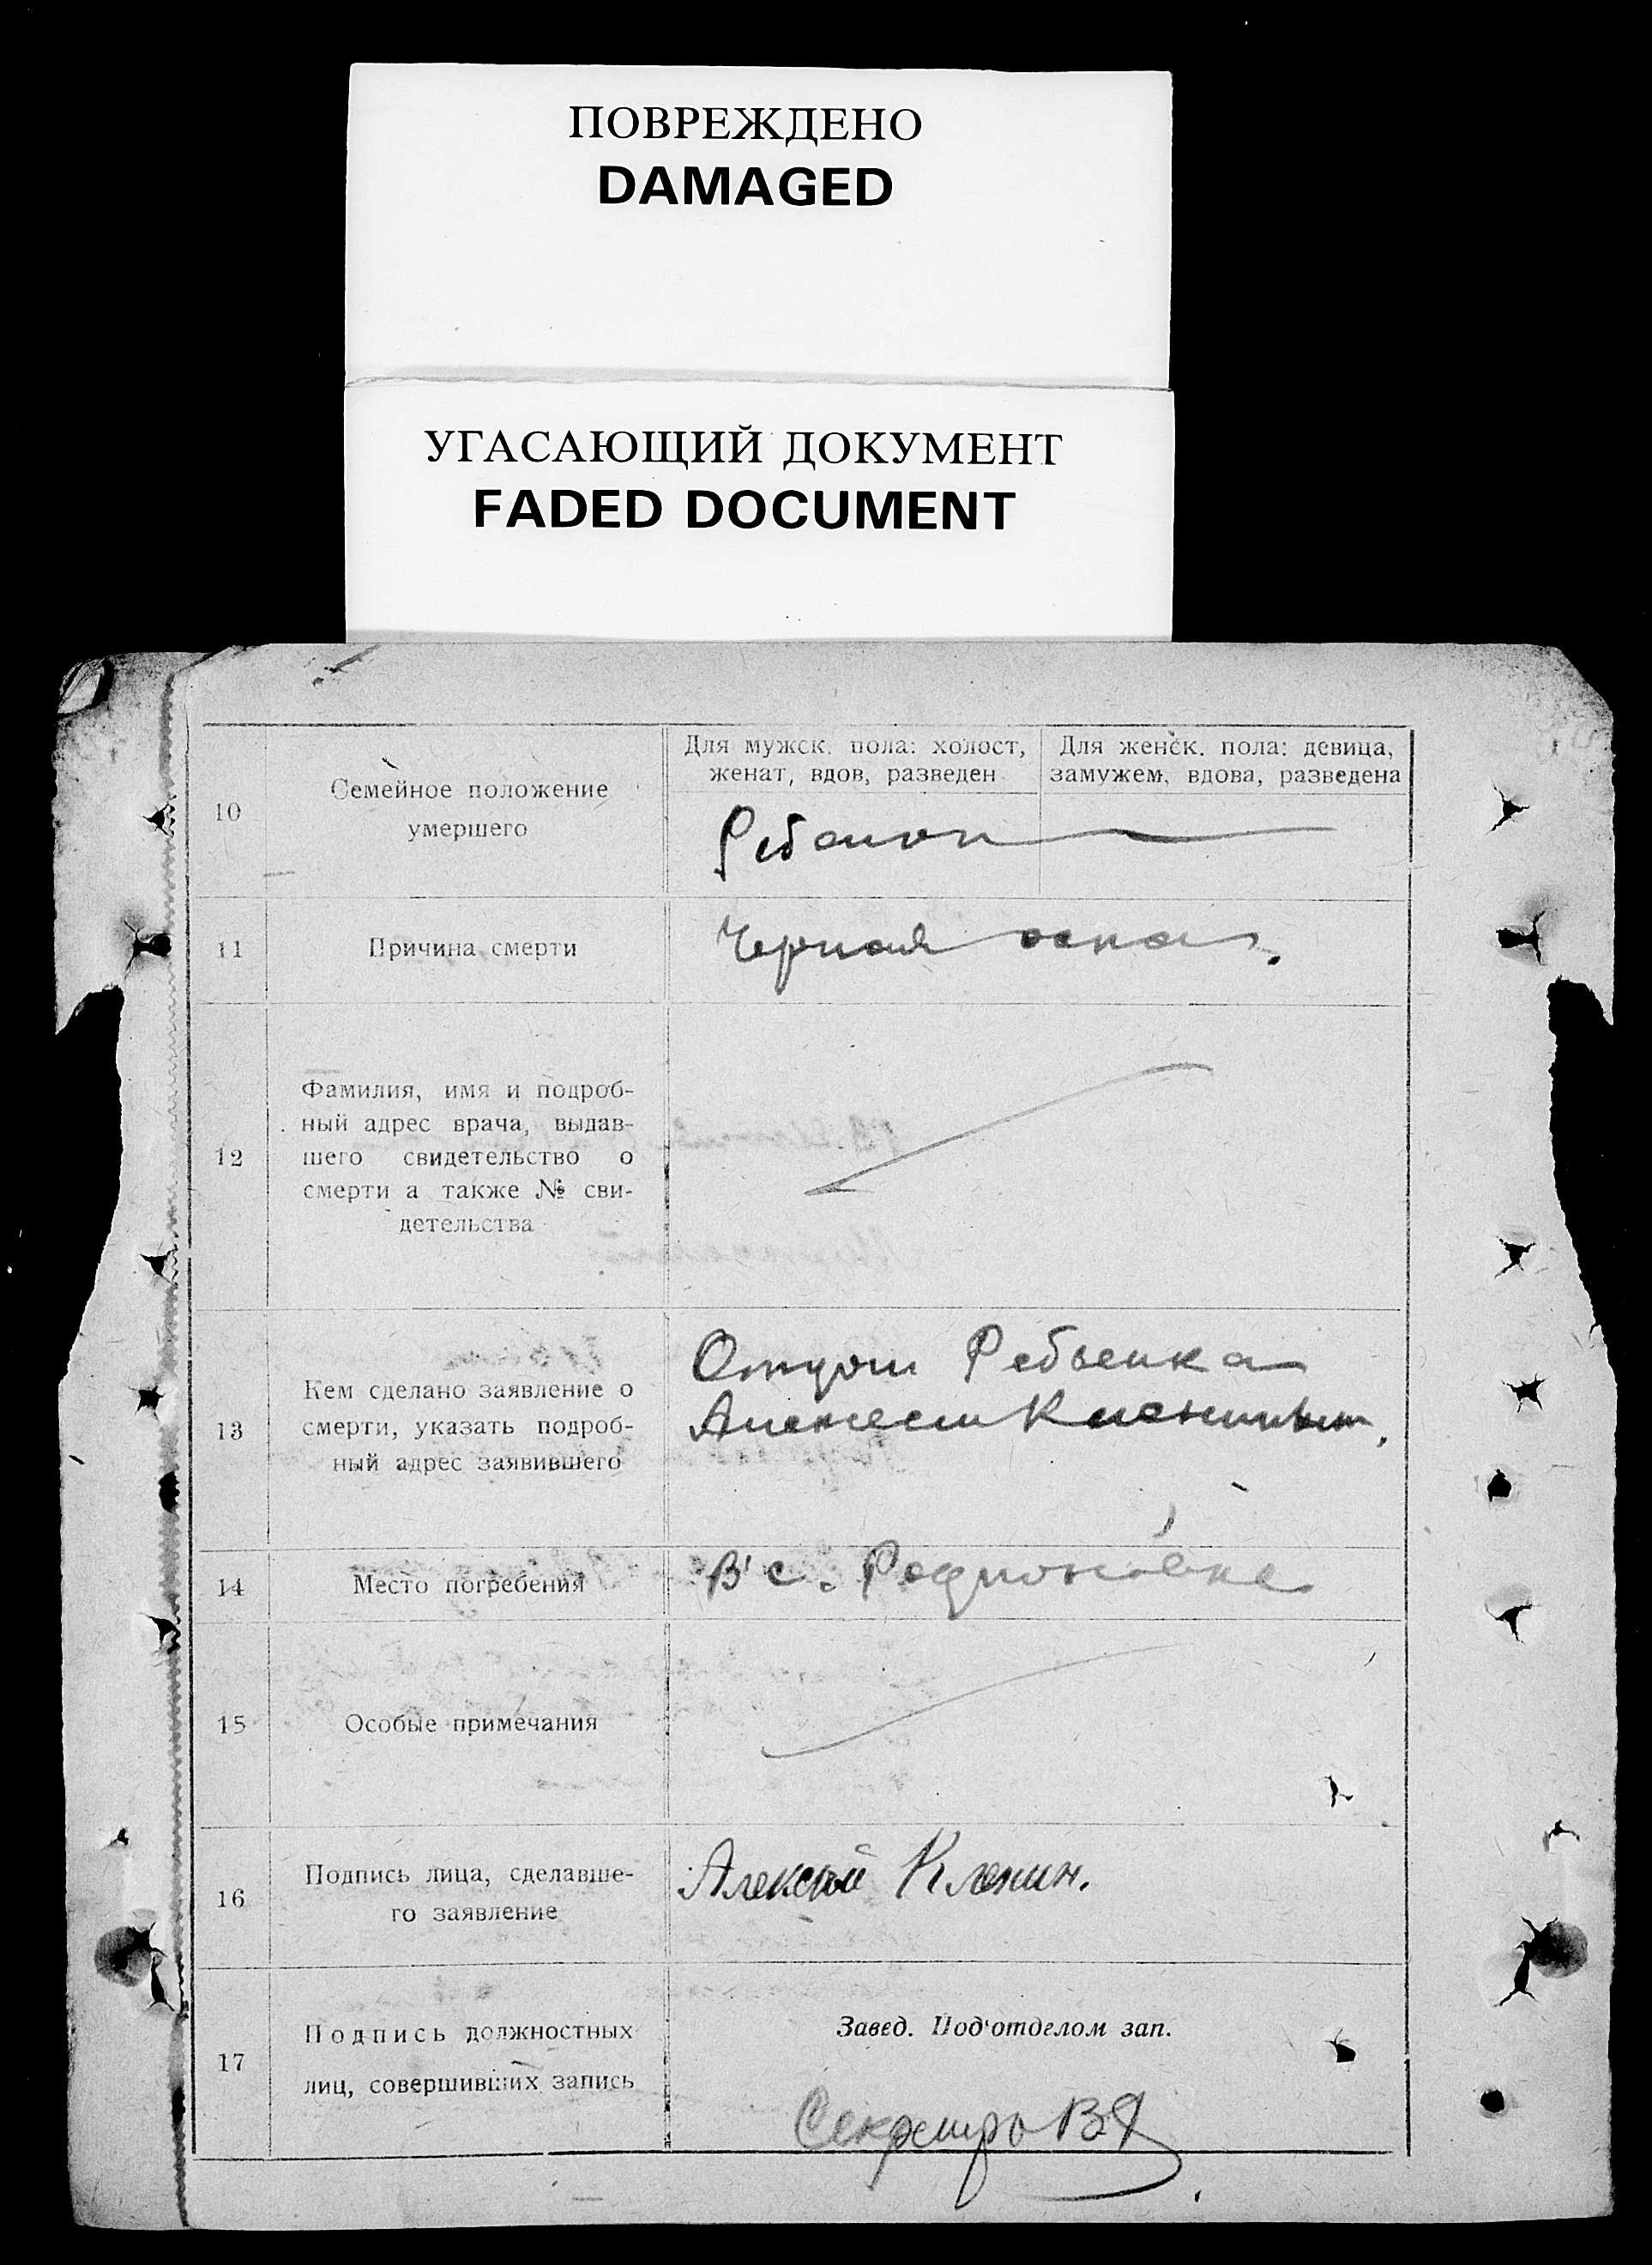 ПОВРЕЖДЕНО
DAMAGED
УГАСАЮЩИЙ ДОКУМЕНТ
FADED DOCUMENT
10
Семейное положение
умершего
Для мужск. пола: холост,
женат, вдов, разведен
Для женск. пола: девица,
замужем, вдова, разведена
11
Причина смерти
Черная оспа.
12
Фамилия, имя и подроб-
ный адрес врача, выдав-
шего свидетельство о
смерти а также № сви-
детельства
13
Кем сделано заявление о
смерти, указать подроб-
ный адрес заявившего
Отцом Ребъенка
Алексеем
14
Место погребения
В с. Родионовке
15
Особые примечания
16
Подпись лица, сделавше-
го заявление
Алексей Кленин.
17
Подпись должностных
лиц, совершивших запись
Завед. Под'отделом зап.